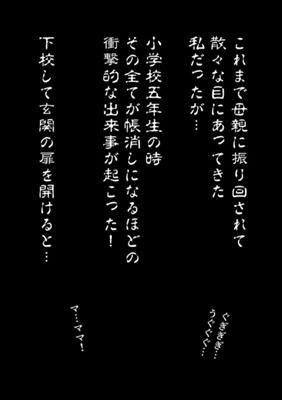 これまで母親に振り回されて
散々な目にあってきた
私だったが…
小学校五年生の時
その全てが帳消しになるほどの
衝撃的な出来事が起こった！
下校して玄関の扉を開けると…
ぐぎぎぎ…
うぐぐぐ…
マ…ママ！